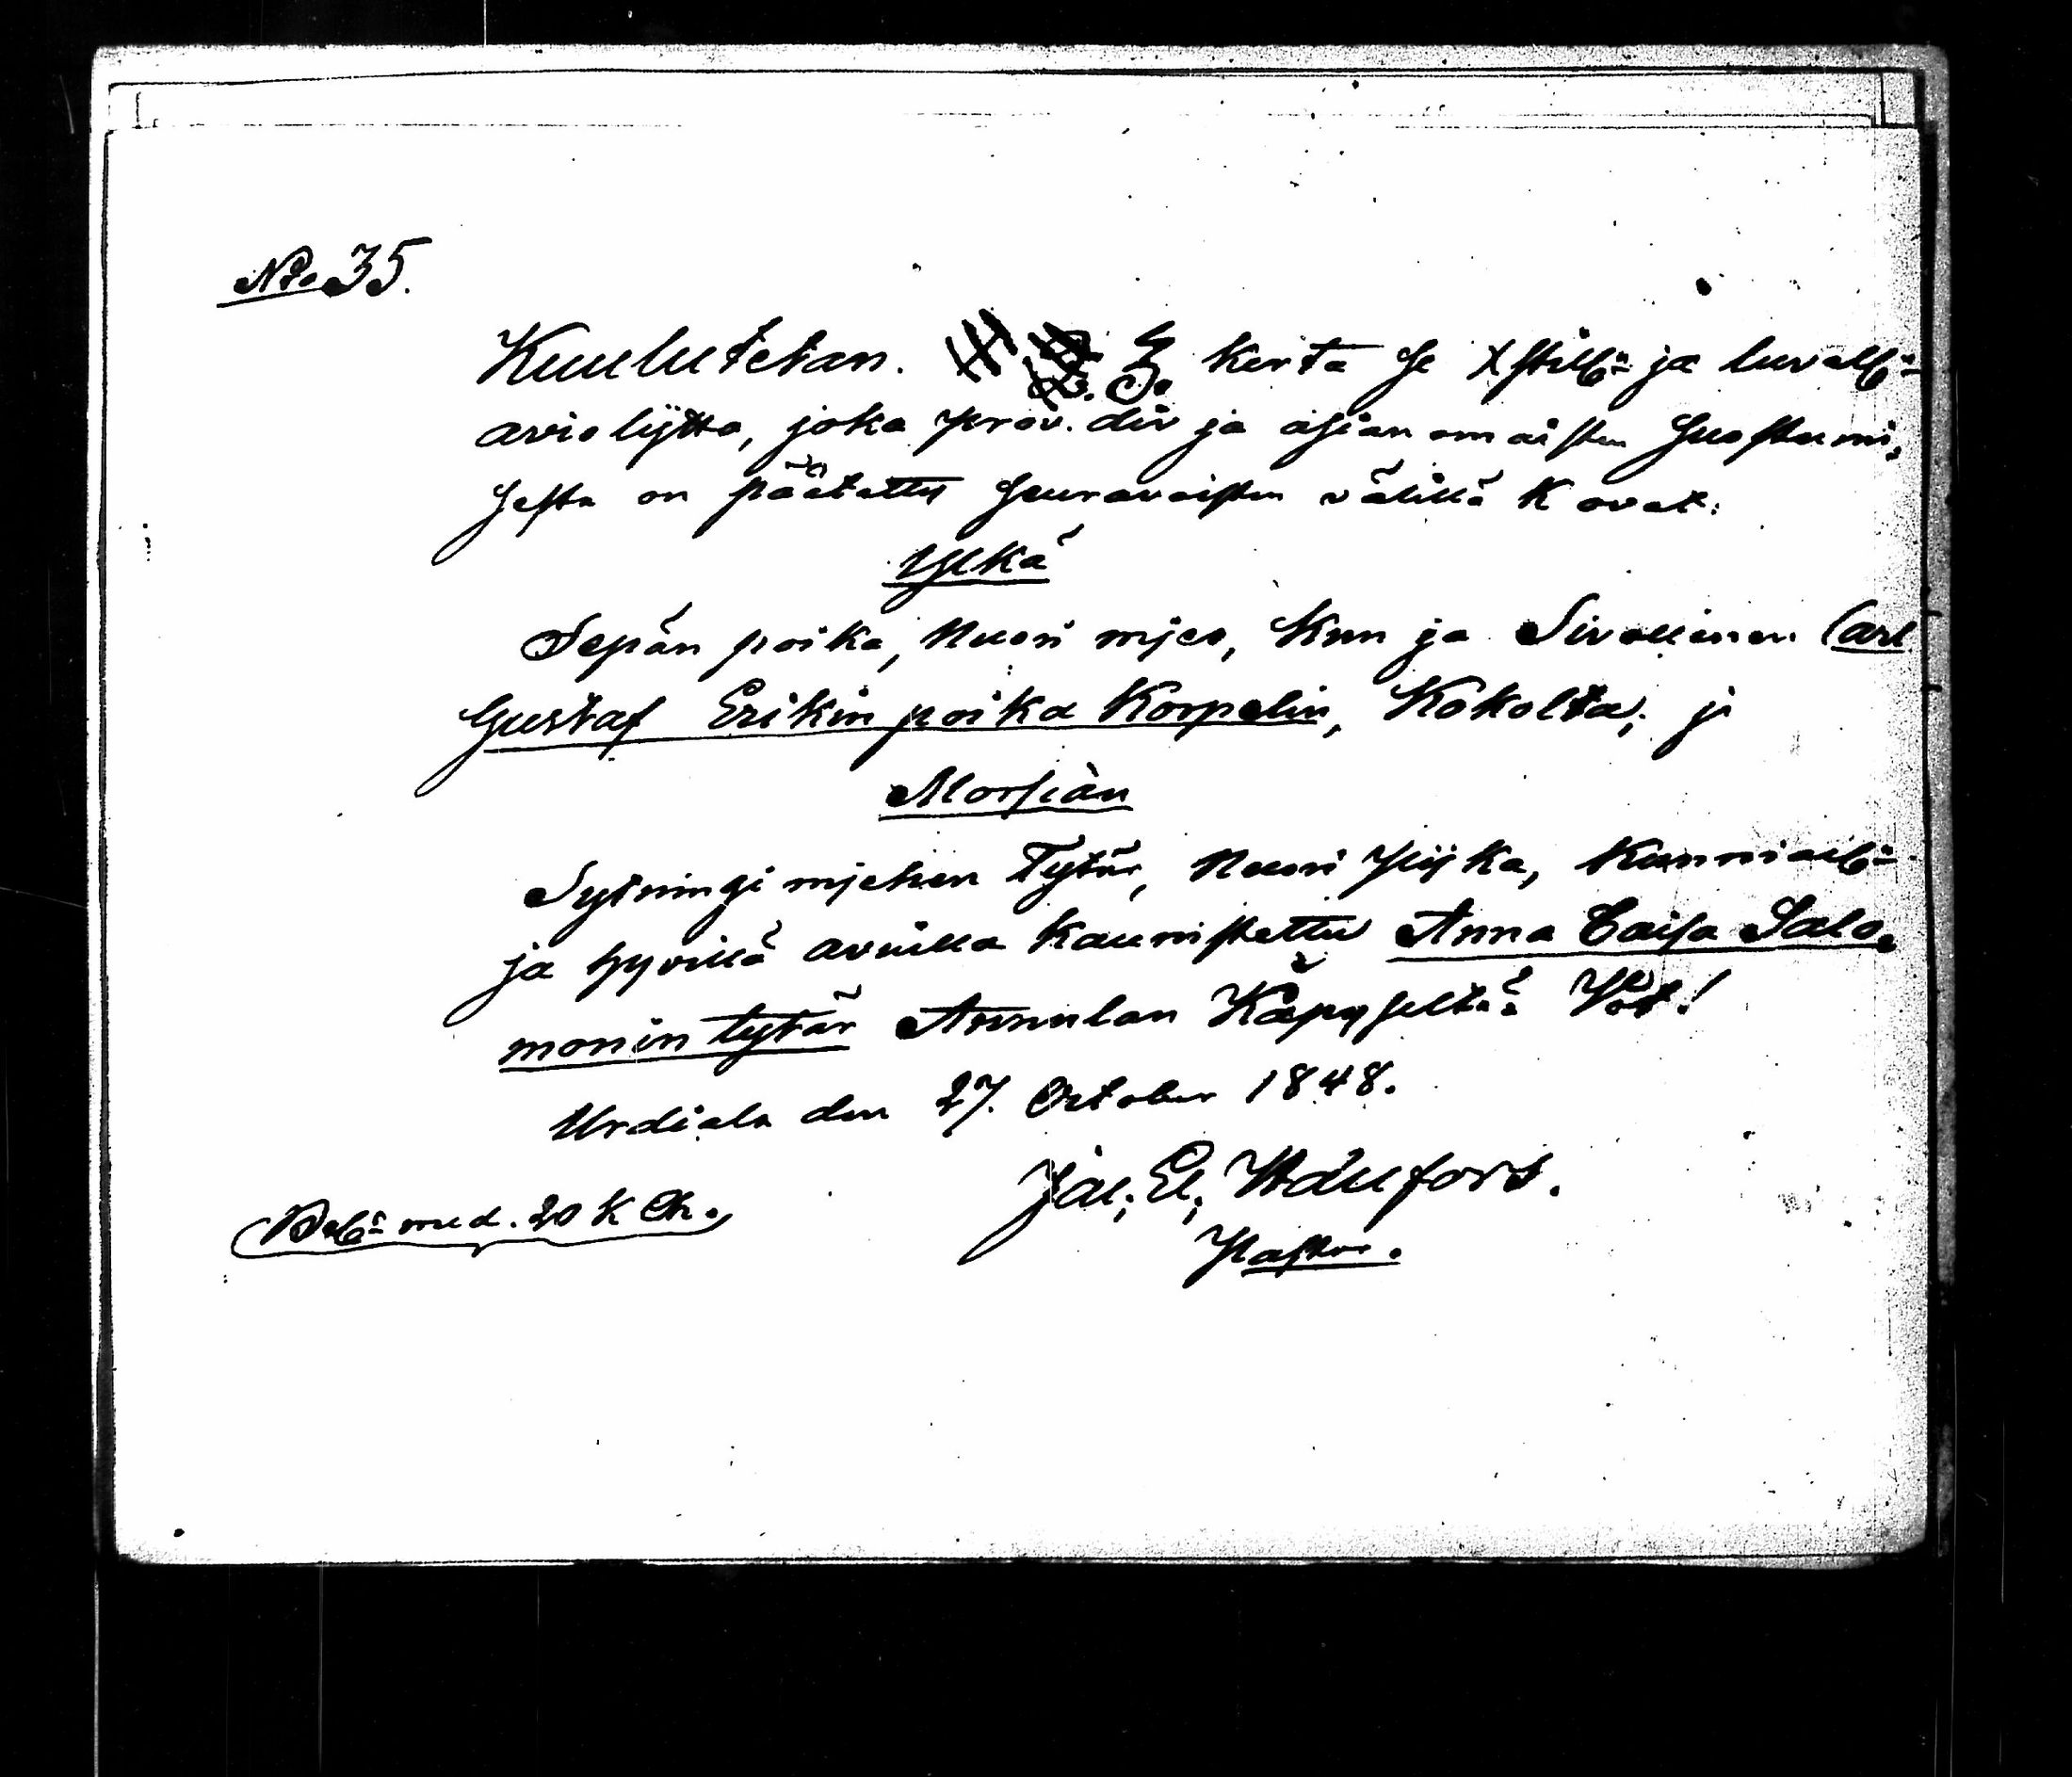 No 35.
Kuulutetan. 3. kerta se Xstill:n ja luvall:n
aviolijtto, joka prov. div ja asianomaisten suostumi,
sesta on päätetty seuravaisten välillä K ovat:
Ylkä
Sepän poika, Nuori mjes, Kun ja Sivollinen Carl
Gustaf Erikin poika Korpelin, Kokolta, ja
Morsian
Sytningi mjehen Tytär, Nuori Pijka, Kunniall:n
ja hyvillä avuilla kaunistettu Anna Caisa Salo,
monin tytär Annulan Käpyseltä.
Urdiala den 27. October 1848.
Jac. El.
Pastor.
Bet:n med. 20 K